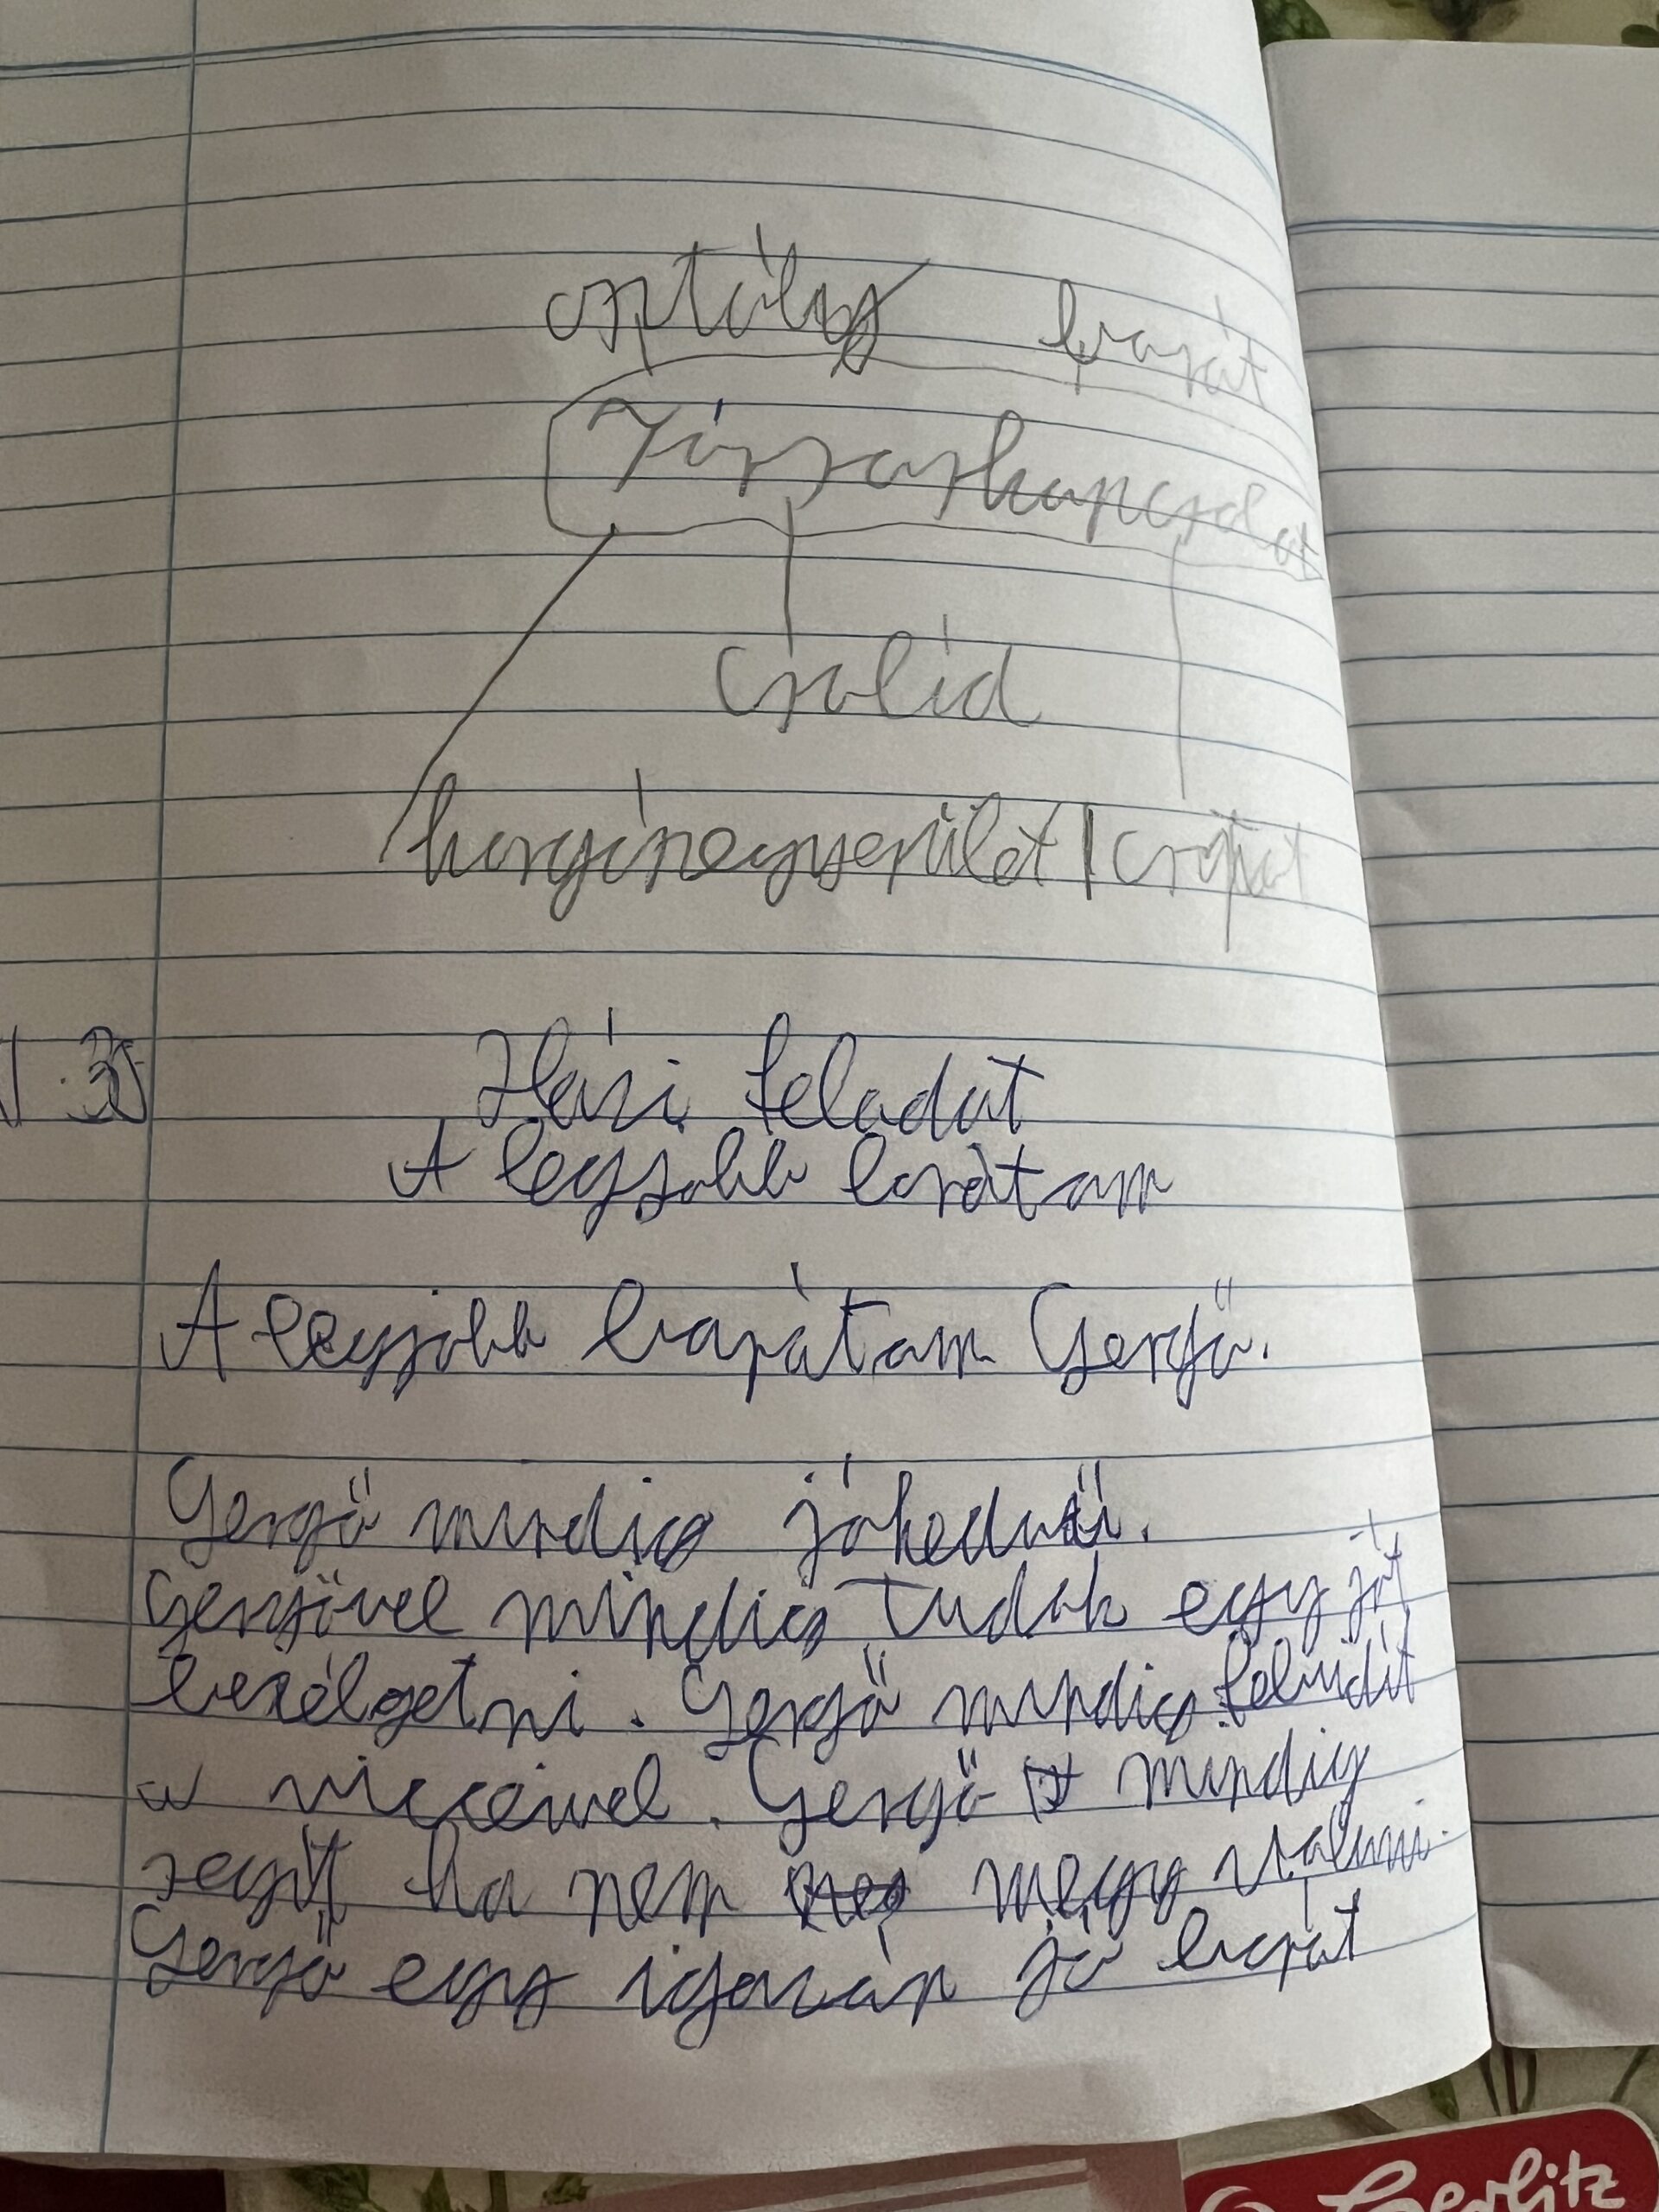 osztály barát
Társaskapcsolat
Család
horgászegyesület | csapat
Házi feladat
A legjobb barátam
A legjobb barátam Gergő.
Gergő mindig jókedvű.
Gergővel mindig tudok egy jót
beszélgetni. Gergő mindig felvidít
a vicceivel. Gergő mindig
segít ha nem megy valami.
Gergő egy igazán jó barát
Herlitz